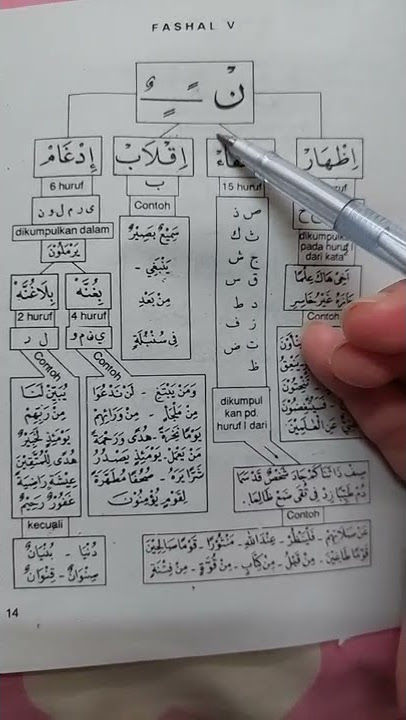 FASHAL V
نْ ــًــٍــٌ
إِدْغَامْ
إِقْلَابْ
إِظْهَارْ
6 huruf
ب
15 huruf
ي ر م ل و ن
Contoh
dikumpulkan dalam
يَرْمَلُوْنَ
سَمِيْعٌ بَصِيْرٌ
يَنْبَغِي -
مِنْ بَعْدِ
فِى سُنْبُلَةٍ
ص ذ
ث ك
ج ش
ق س
د ط
ز ف
ت ض
ظ
dikumpulkan
pada huruf
dari kata
أَخِى هَاكَ عِلْمًا
حَازَهُ غَيْرُ خَاسِرٍ
Contoh
بِلَاغُنَّه
بِغُنَّه
2 huruf
4 huruf
ل ر
ي ن م و
Contoh
Contoh
يُبَيِّنْ لَنَا
مِنْ رَبِّهِمْ
يَوْمَئِذٍ لَخَبِيْرٌ
هُدًى لِلْمُتَّقِيْنَ
عِيْشَةٍ رَاضِيَةٍ
غَفُوْرٌ رَحِيْمٌ
وَمَنْ يَبْتَغِ - لَنْ نَدْعُوَا
مِنْ مَلْجَإٍ - مِنْ وَرَائِهِمْ
يَوْمًا نَحِرَةً - هُدًى وَرَحْمَةً
مَنْ يَعْمَلْ - يَوْمَئِذٍ يَصْدُرُ
شَرًّا يَرَهُ - صُحُفًا مُطَهَّرَةً
لِقَوْمٍ يُؤْمِنُوْنَ
dikumpul
kan pd.
huruf I dari
صِفْ ذَا ثَنَا كَمْ جَادَ شَخْصٌ قَدْ سَمَا
دُمْ طَيِّبًا زِدْ فِى تُقًى ضَعْ ظَالِمًا.
Contoh
kecuali
دُنْيَا - بُنْيَانٌ
صِنْوَانٌ - قِنْوَانٌ
عَنْ صَلَاتِهِمْ - فَلْيَنْظُرْ - عِنْدَ اللهِ - مَنْثُوْرًا - قَوْمًا صَالِحِيْنَ
قَوْمًا طَاغِيْنَ - مِنْ قَبْلُ - مِنْ كِتَابٍ - مِنْ قُوَّةٍ - مِنْ فِتْنَةٍ
14